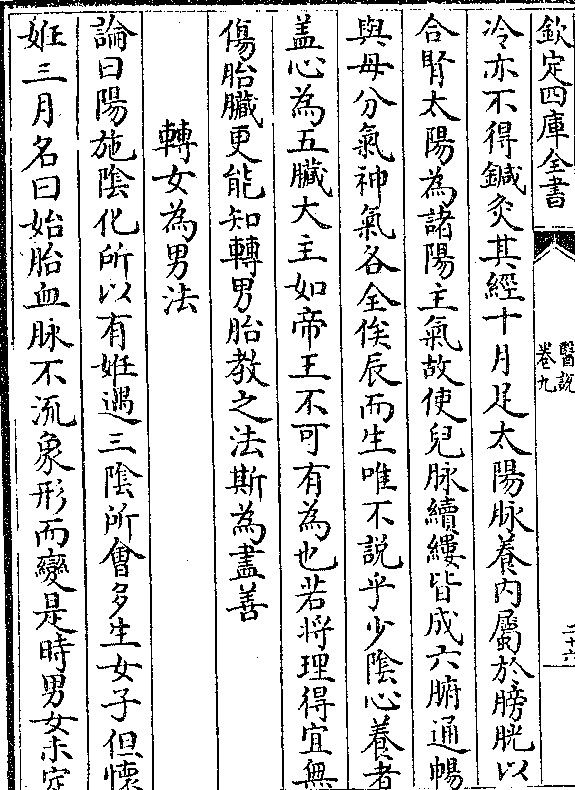 欽定四庫全書
醫說
卷九
二十六
冷亦不得鍼灸其經十月足太陽脉養内屬於膀胱以
合腎太陽為諸陽主氣故使兒脉續縷皆成六腑通暢
與母分氣神氣各全俟辰而生唯不說手少陰心養者
盖心為五臟大主如帝王不可有為也若將理得宜無
傷胎臟更能知轉男胎教之法斯為盡善
轉女為男法
論曰陽施隂化所以有姙遇三隂所會多生女子但懷
姙三月名曰始胎血脉不流象形而變是時男女未定